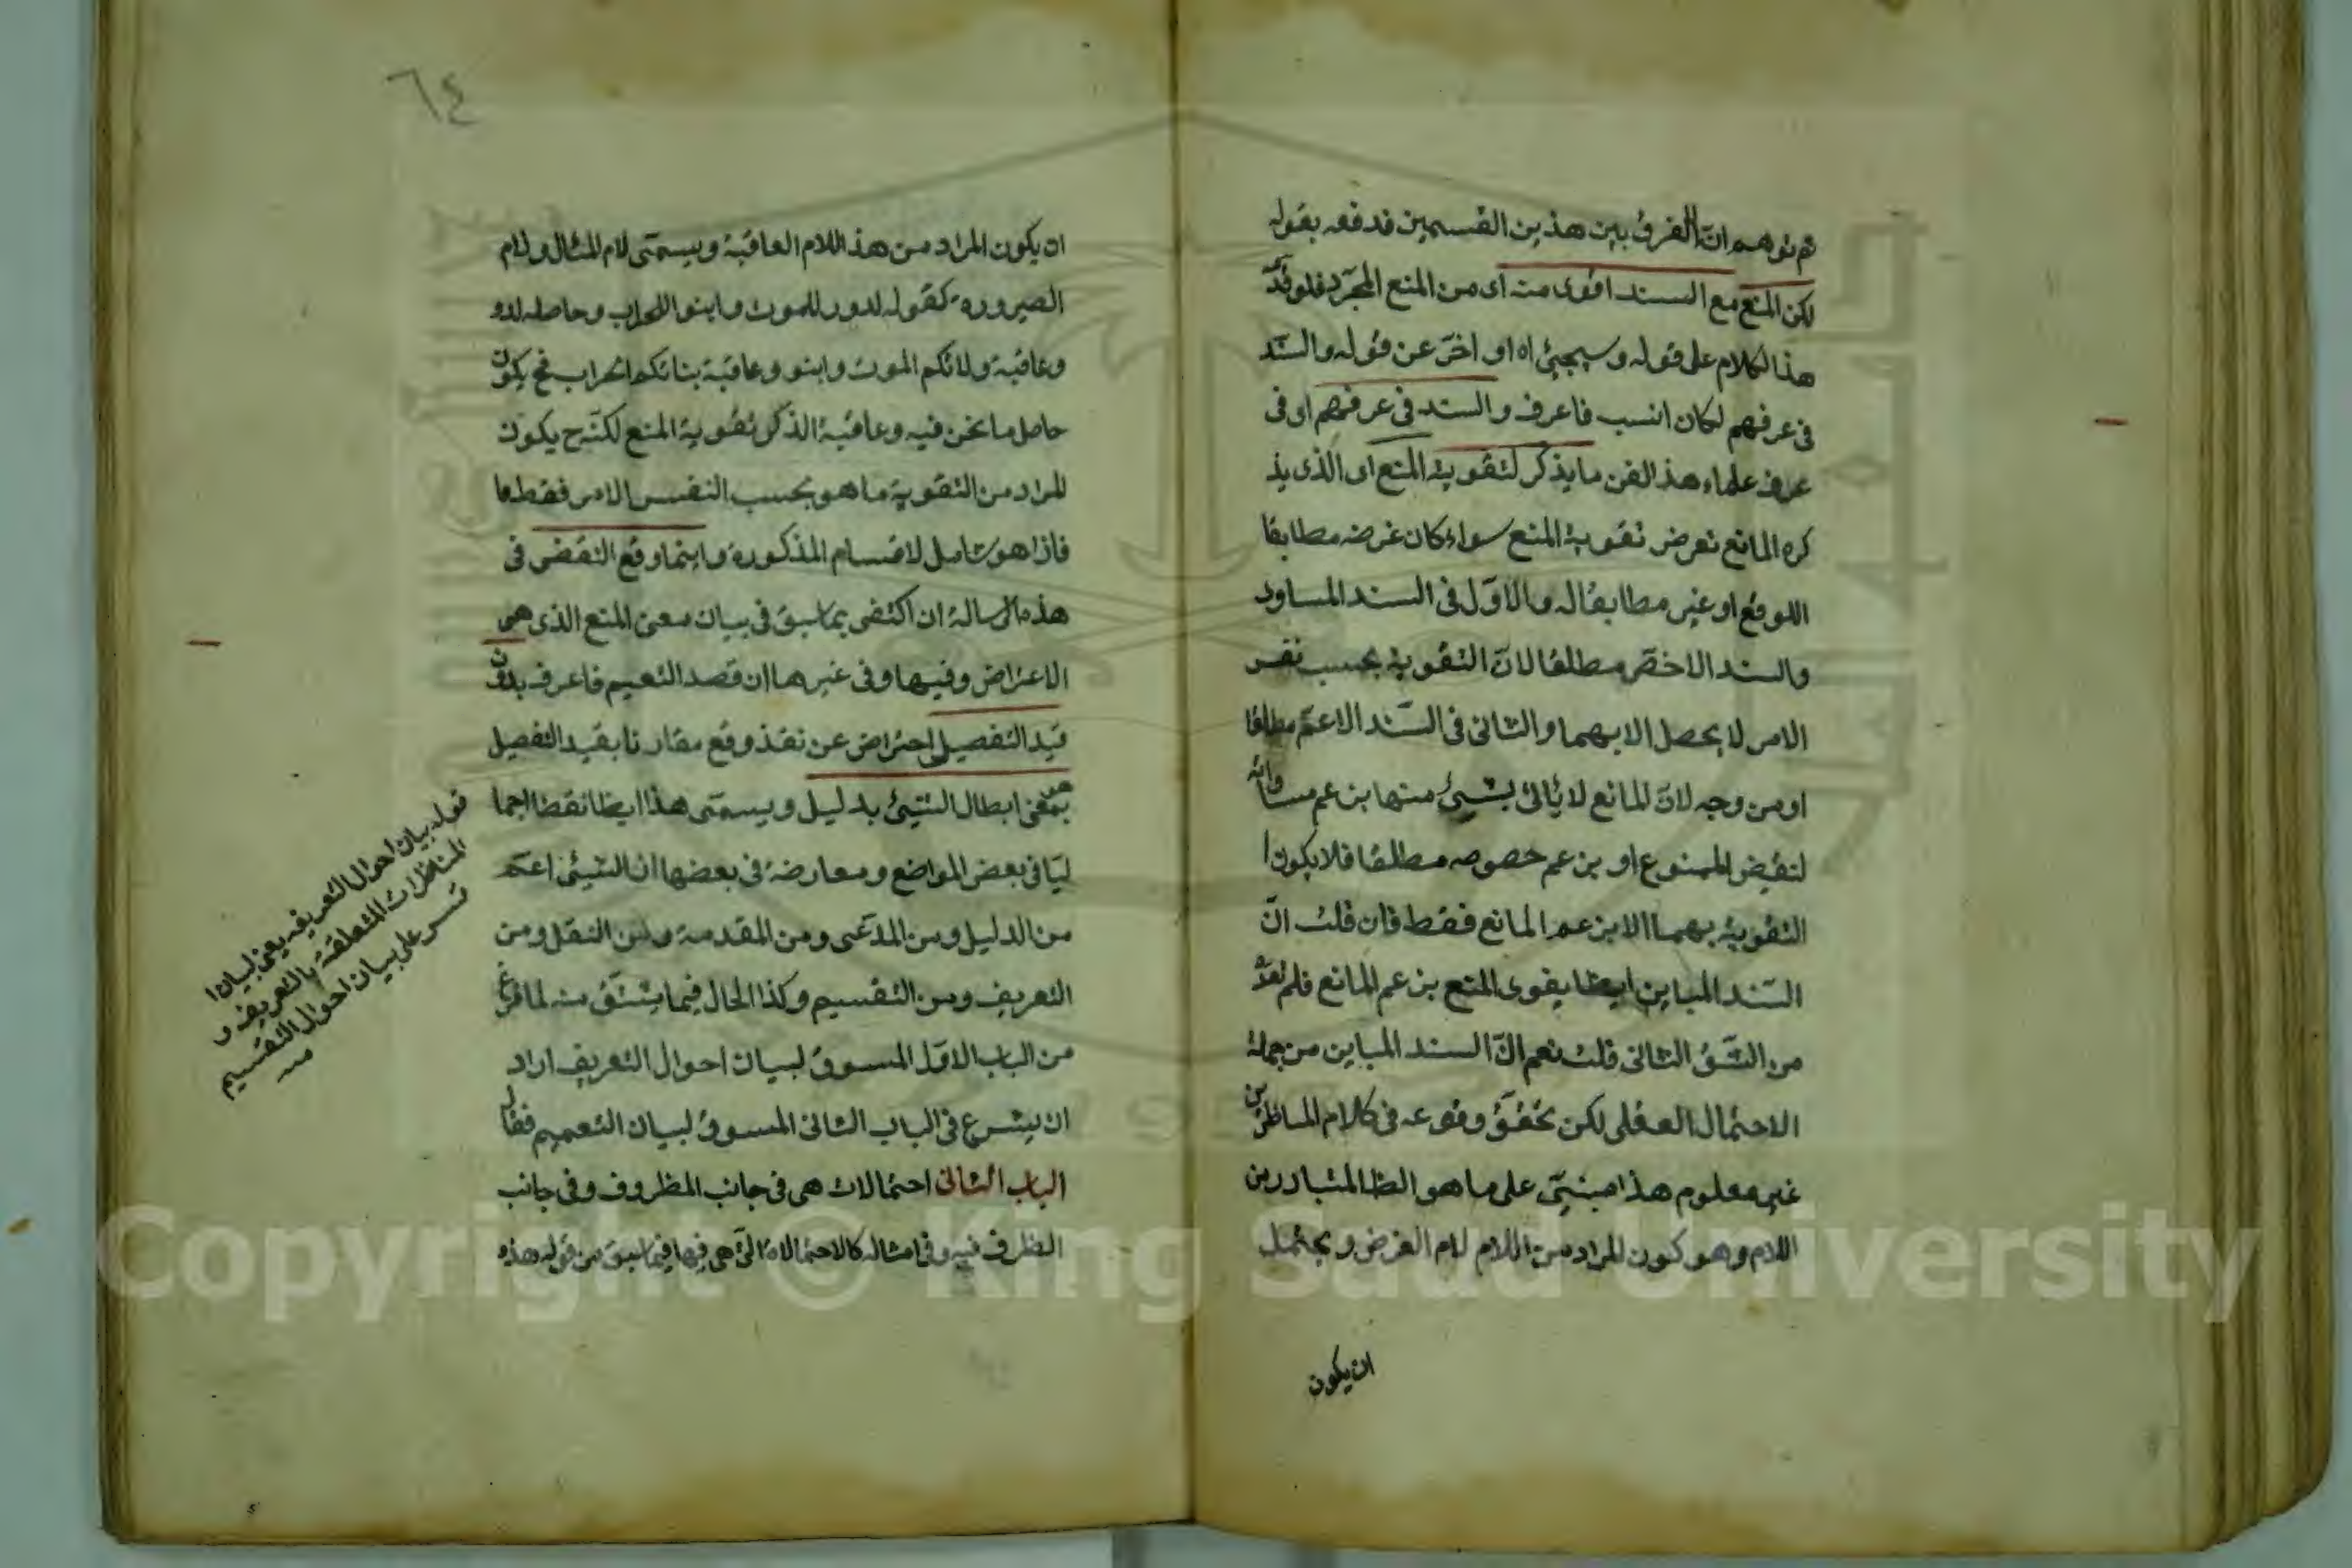 ثم توهم ان الفرق بين هذين القسمين فدفعه بقوله
لكن المنع مع السند اقوى منه اى من المنع المجرد فلو قدّم
هذا الكلام على قوله وسيجيئ اه او اخّر عن قوله والسند
فى عرفهم لكان انسب فاعرف والسند فى عرفهم اى فى
عرف علماء هذا الفن ما يذكر لتقوية المنع اى الذى يذ
كره المانع تعرض تقوية المنع سواء كان غرضه مطابقا
اللوقع او غير مطابقا له والاوّل فى السند المساوى
والسند الاخصّ مطلقا لانّ التقوية بحسب نفس
الامر لا يحصل الا بهما والثانى فى السّند الاعمّ مطلقا
او من وجه لانّ المانع لا يأتى بشيئ منها بزعم مساواته
لنقيض الممنوع او بزعم خصوصه مطلقا فلا يكون ا
التقوية بهما الا بزعم المانع فقط فان قلت انّ
السّند المباين ايضا يقوى المنع بزعم المانع فلم يعدّ
من الشّق الثانى قلت نعم انّ السند المباين من جملة
الاحتمال العقلى لكن تحقق وقوعه فى كلام المناظرين
غير معلوم هذا مبنىّ على ما هو الظ المتبادر من
اللام وهو كون المراد من اللام لام الغرض ويحتمل
ان يكون
٦٤
ان يكون المراد من هذ اللام العاقبة ويسمّى لام المثال ولام
الصيرورة كقوله لدو للموت وابنو اللخراب وحاصله لدو
وعاقبة ولائكم الموت وابنو وعاقبة بنائكم الخراب فح يكون
حاصل ما نحن فيه وعاقبة الذكر تقوية المنع لكنّه ح يكون
المراد من التقوية ما هو بحسب النفس الامر فقط
فاذا هو شامل لاقسام المذكورة واينما وقع النقض فى
هذه الرسالة ان اكتفى بما سبق فى بيان معنى المنع الذى هى
الاعتراض وفيها وفى غيرها ان قصد التعيم فاعرف بدون
قيد التفصيلى احتراض عن نقذ وقع مقارنا بقيد التفصيل
هو بمعنى ابطال الشيئ بدليل ويسمّى هذا ايضا نقضا اجما
ليّا فى بعض المواضع ومعارضة فى بعضها ان الشيئ اعمّ
من الدليل ومن المدّعى ومن المقدمة ومن النقل ومن
التعريف ومن التقسيم وكذا الحال فيما يشتق منه لما فرغ
من الباب الاوّل المسوق لبيان احوال التعريف اراد
ان يشرع فى الباب الثانى المسوق لبيان التعميم فقال
الباب الثانى احتمالات هى فى جانب المظروف وفى جانب
الظرف فيه وفى امثاله كالاحتمالات التى هى فيها فيما سبق من قوله هذه
قوله بيان احوال التعريف يعنى لبيان ا
المناظرات المتعلقة بالتعريف و
قس على بيان احوال التقسيم